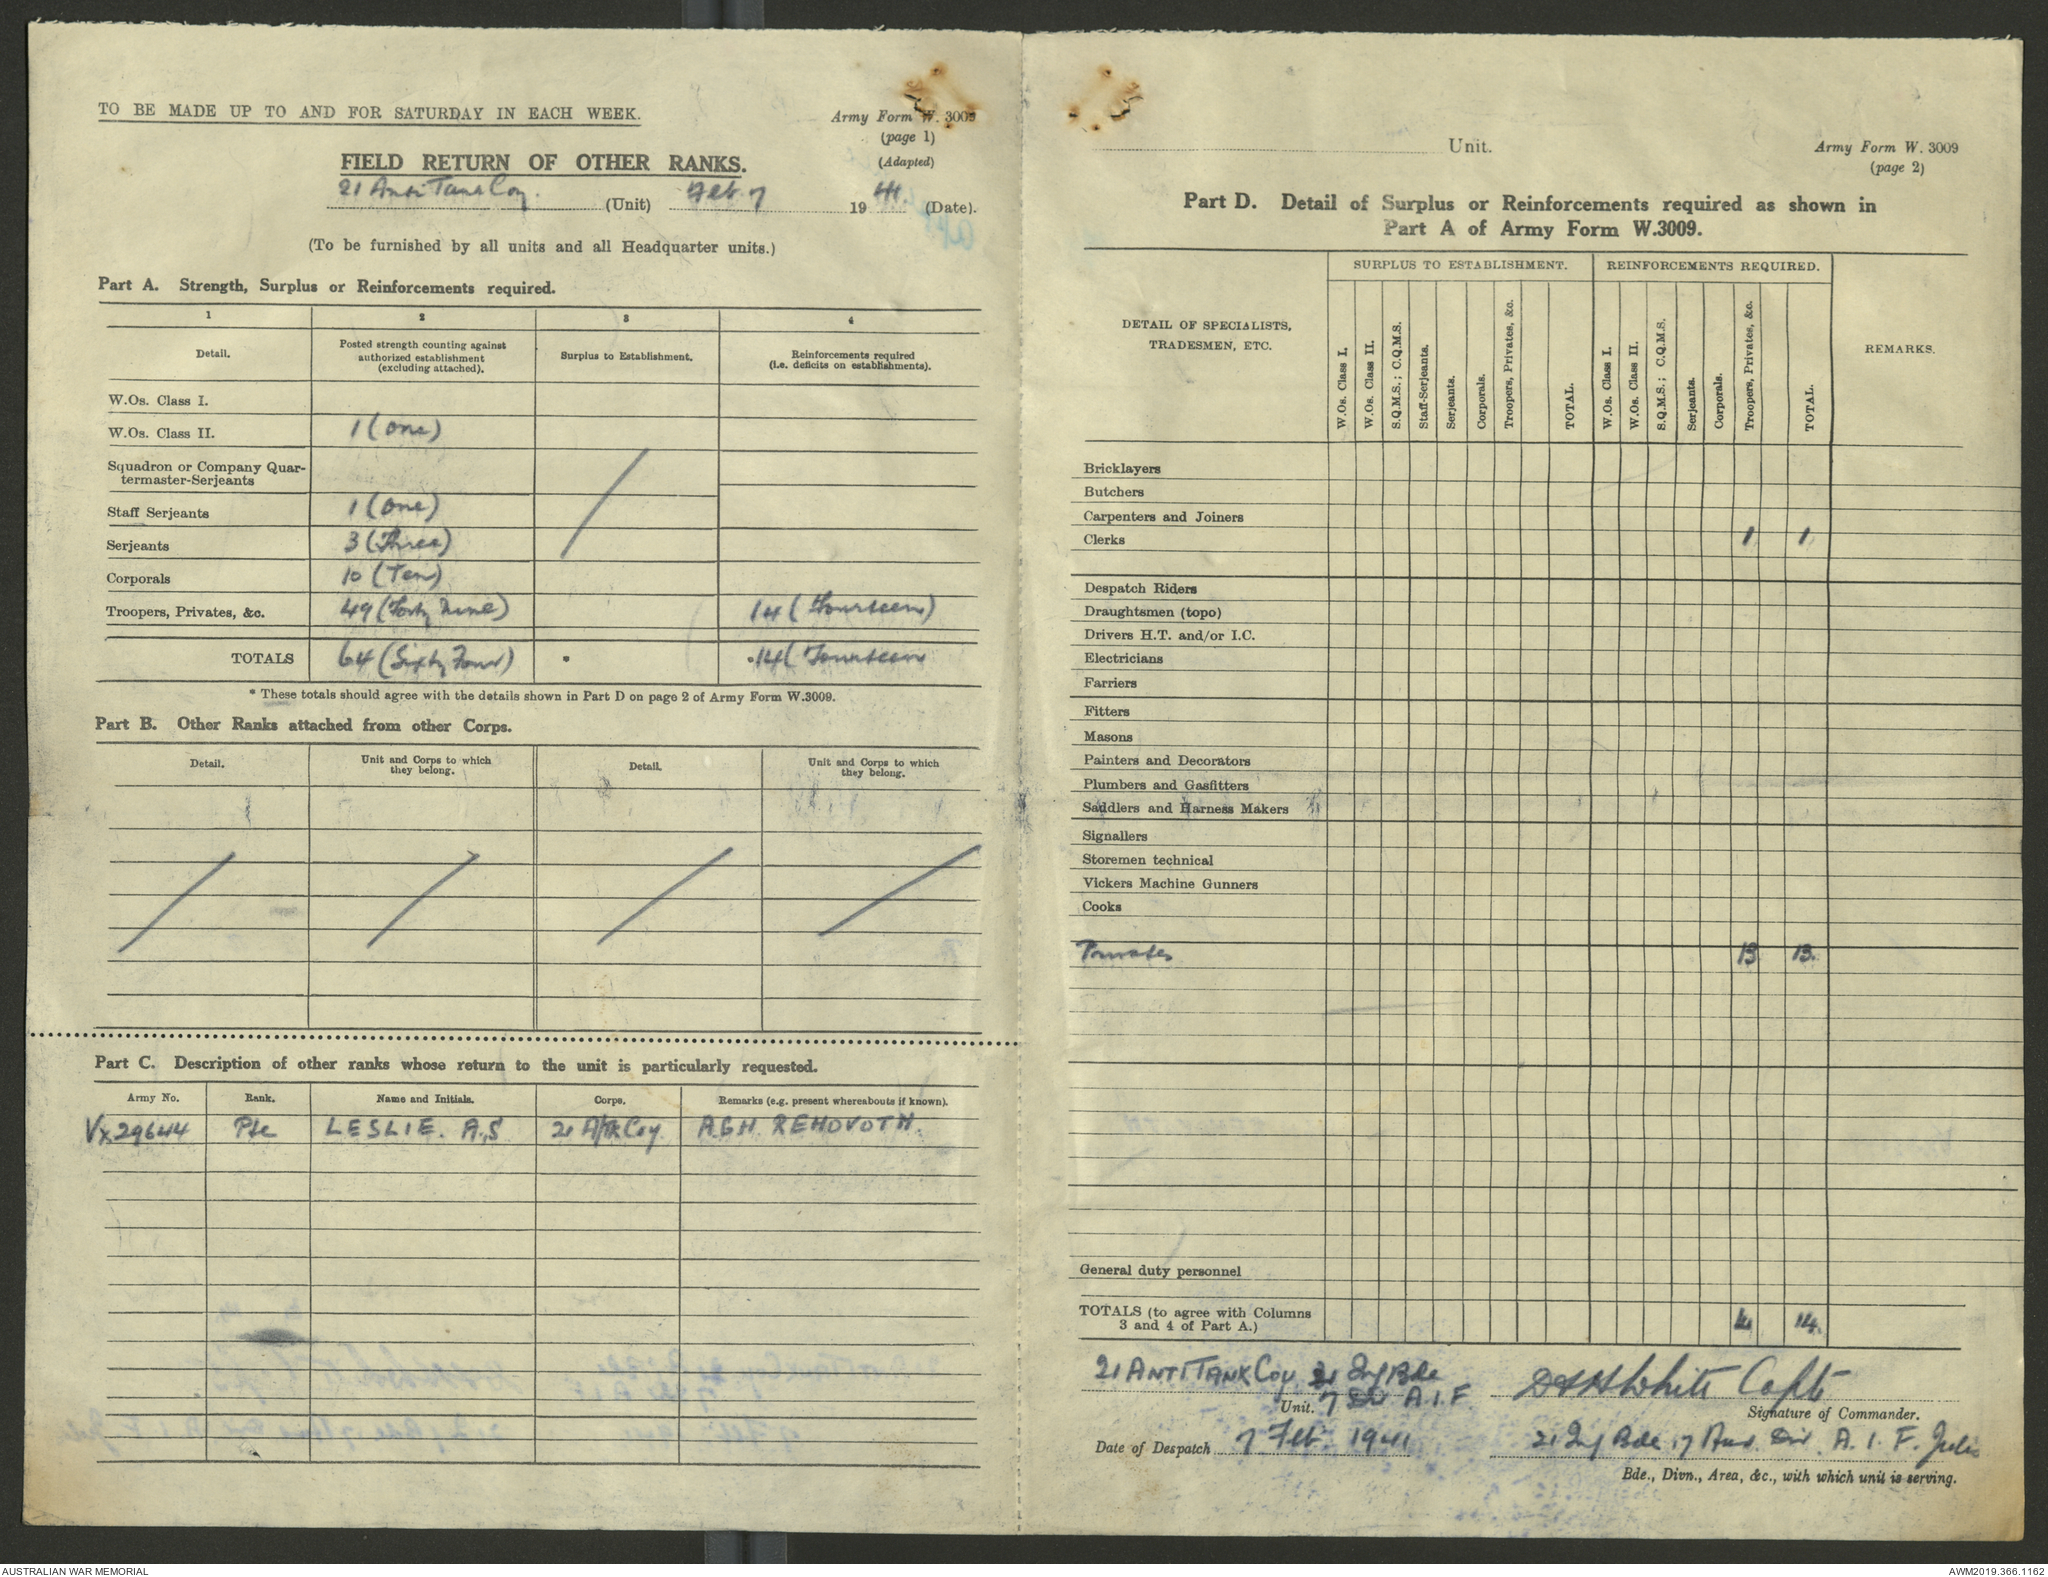 TO BE MADE UP TO AND FOR SATURDAY IN EACH WEEK.
Army Form W. 3009
(page 1)
(Adapted)
FIELD RETURN OF OTHER RANKS.
21 Anti Tank Coy. (Unit) Feb 7 1941. (Date).
(To be furnished by all units and all Headquarter units.)
Part A. Strength, Surplus or Reinforcements required.
1 2 3 4
Detail. Posted strength counting against authorized establishment (excluding attached). Surplus to Establishment. Reinforcements required (i.e. deficits on establishments).
W.Os. Class I.
W.Os. Class II. 1 (One)
Squadron or Company Quar-
termaster-Serjeants
Staff Serjeants 1 (One)
Serjeants 3 (Three)
Corporals 10 (Ten)
Troopers, Privates, &c. 49 (Forty Nine) 14 (Fourteen)
TOTALS 64 (Sixty Four) * *14 (Fourteen
* These totals should agree with the details shown in Part D on page 2 of Army Form W.3009.
Part B. Other Ranks attached from other Corps.
Detail. Unit and Corps to which they belong. Detail. Unit and Corps to which they belong.
Part C. Description of other ranks whose return to the unit is particularly requested.
Army No. Rank. Name and Initials. Corps. Remarks (e.g. present whereabouts if known).
Vx29644 Pte LESLIE. A.S 21 A/Tk Coy. AGH REHOVOTH.
Unit.
Army Form W. 3009
(page 2)
Part D. Detail of Surplus or Reinforcements required as shown in
Part A of Army Form W.3009.
DETAIL OF SPECIALISTS, TRADESMEN, ETC. SURPLUS TO ESTABLISHMENT. REINFORCEMENTS REQUIRED. REMARKS.
W.Os. Class I. W.Os. Class II. S.Q.M.S.; C.Q.M.S. Staff-Serjeants. Serjeants. Corporals. Troopers, Privates, &c. TOTAL. W.Os. Class I. W.Os. Class II. S.Q.M.S.; C.Q.M.S. Serjeants. Corporals. Troopers, Privates, &c. TOTAL.
Bricklayers
Butchers
Carpenters and Joiners
Clerks 1 1
Despatch Riders
Draughtsmen (topo)
Drivers H.T. and/or I.C.
Electricians
Farriers
Fitters
Masons
Painters and Decorators
Plumbers and Gasfitters
Saddlers and Harness Makers
Signallers
Storemen technical
Vickers Machine Gunners
Cooks
Privates 13 13.
General duty personnel
TOTALS (to agree with Columns
3 and 4 of Part A.) 14 14.
21 ANTI TANK Coy 21 Inf Bde
Unit. 7 Div A.I.F.
White Capt
Signature of Commander.
Date of Despatch 7 Feb 1941
21 Inf Bde 7 Aust Div. A.I.F.
Bde., Divn., Area, &c., with which unit is serving.
AUSTRALIAN WAR MEMORIAL
AWM2019.366.1162